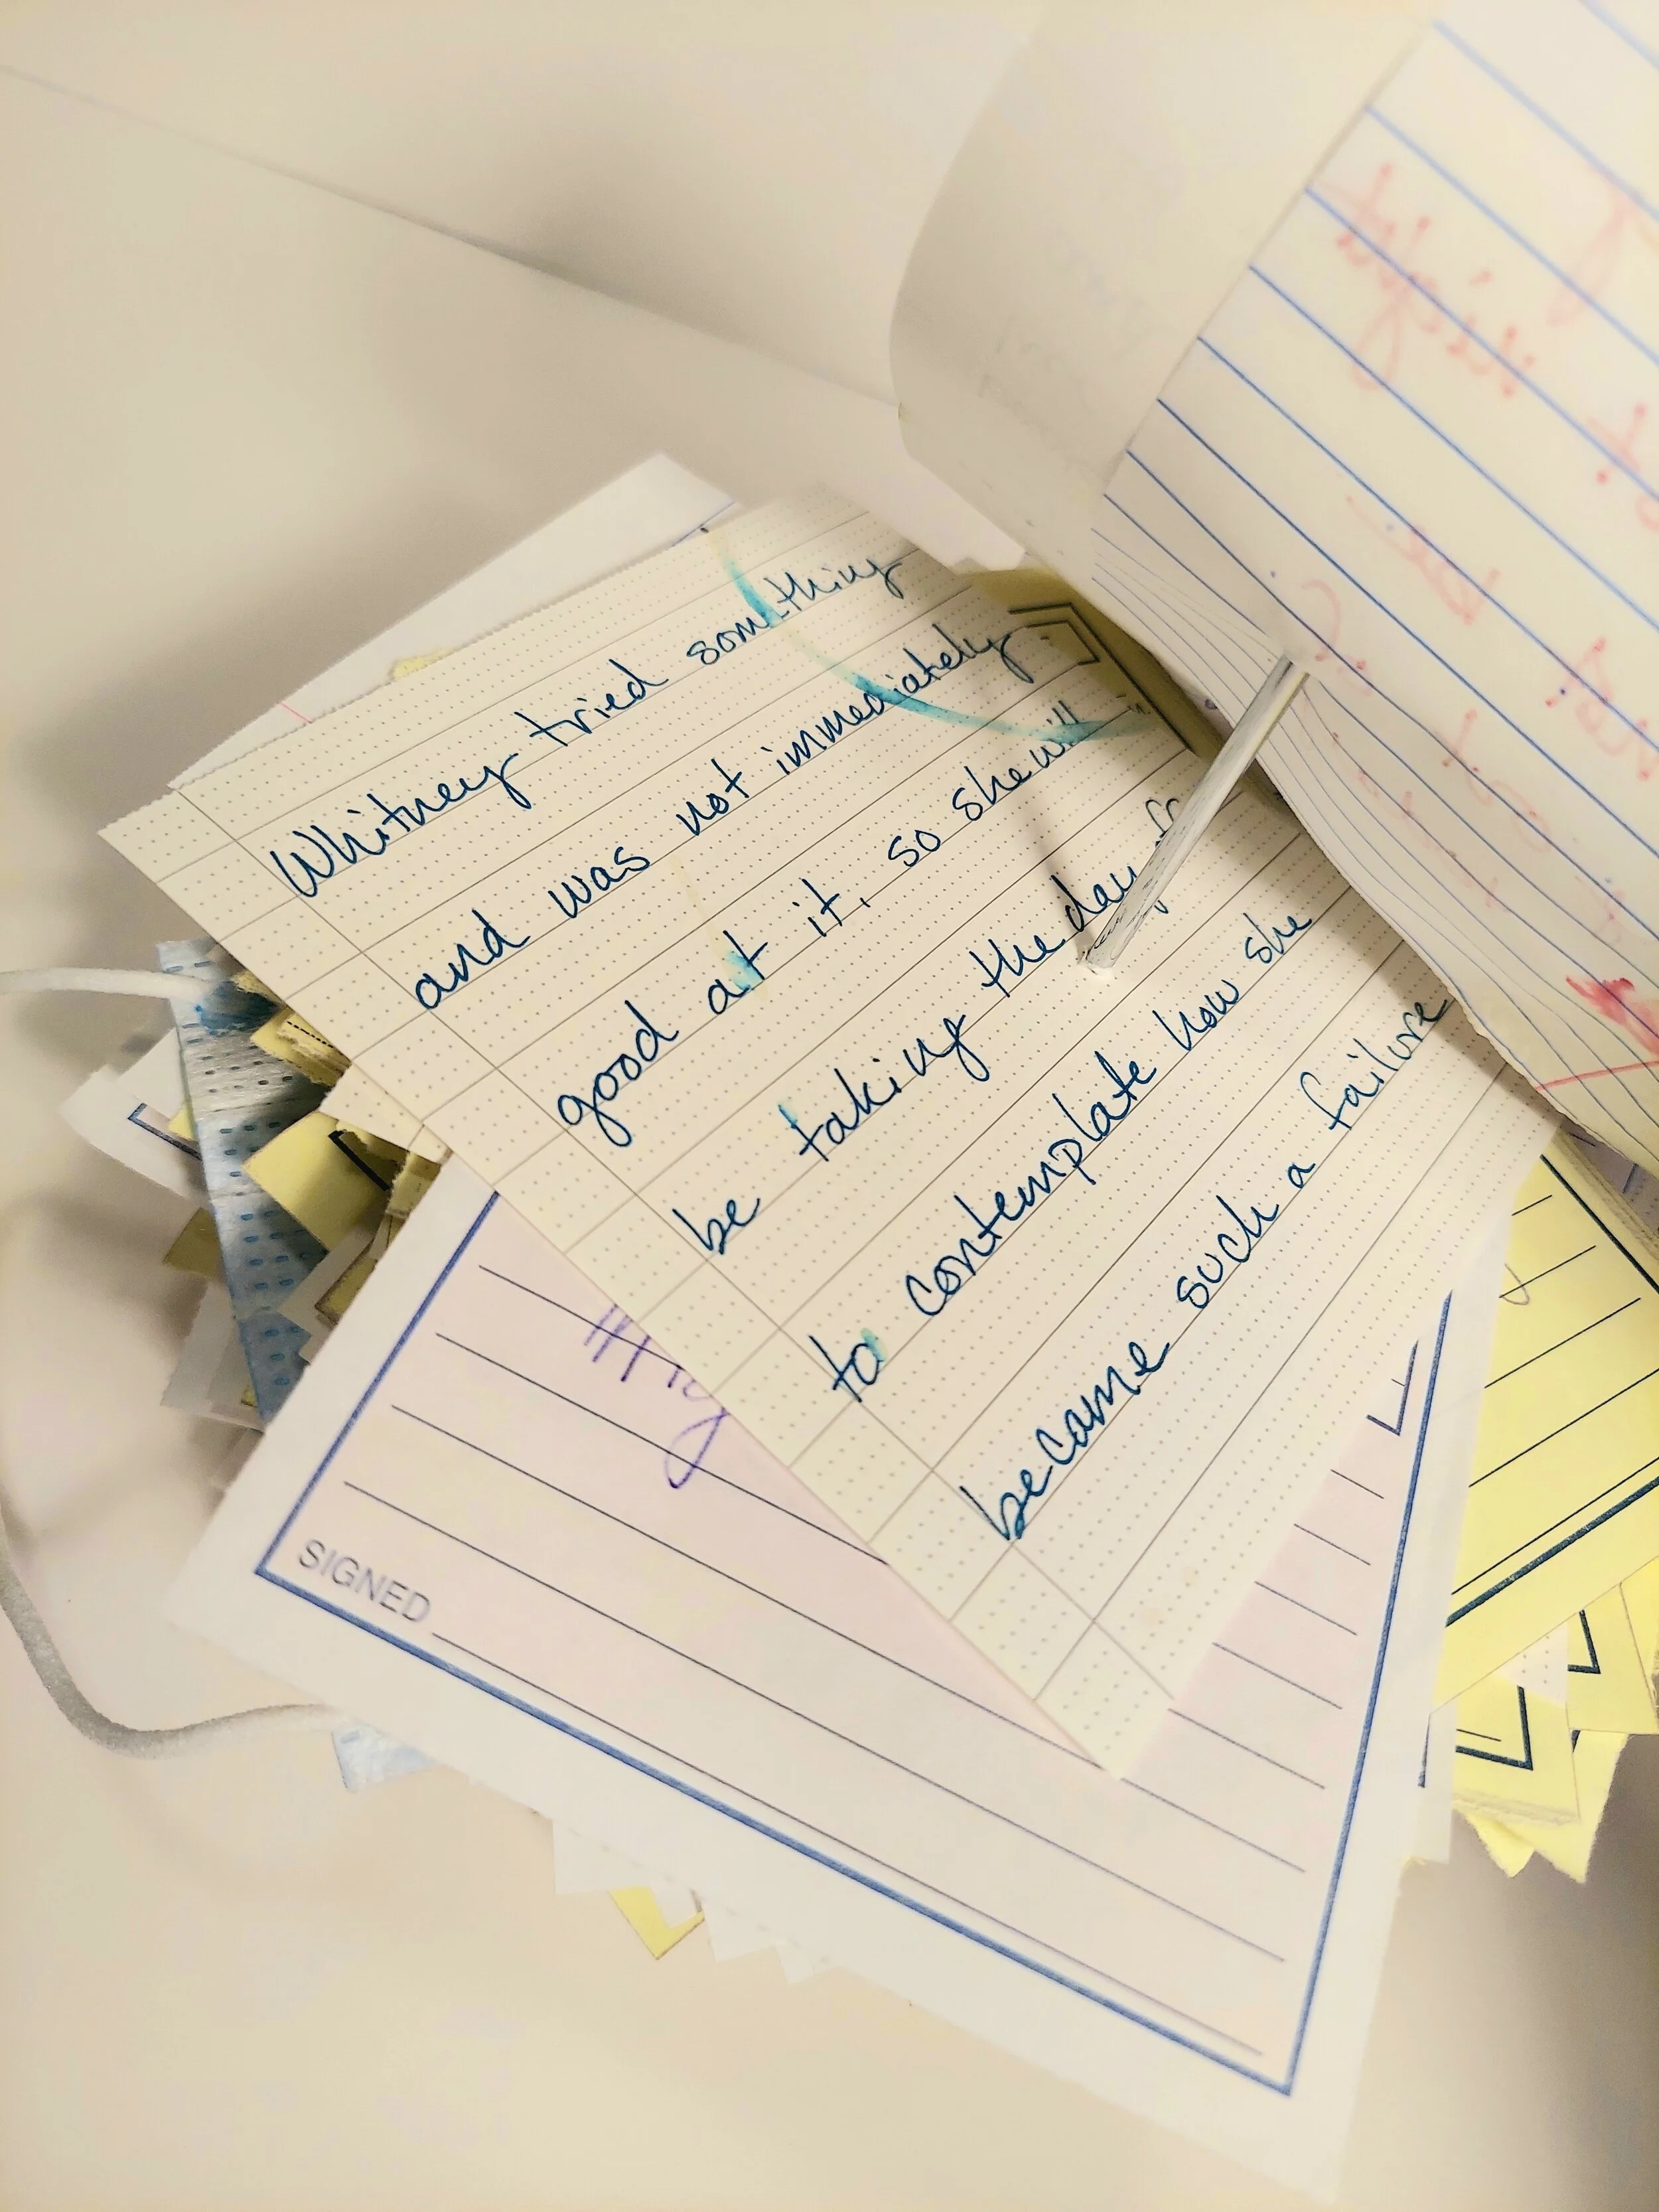 Whitney tried somthing
and was not immediately
good at it, so she will
be taking the day
to contemplate how she
became such a failure
SIGNED